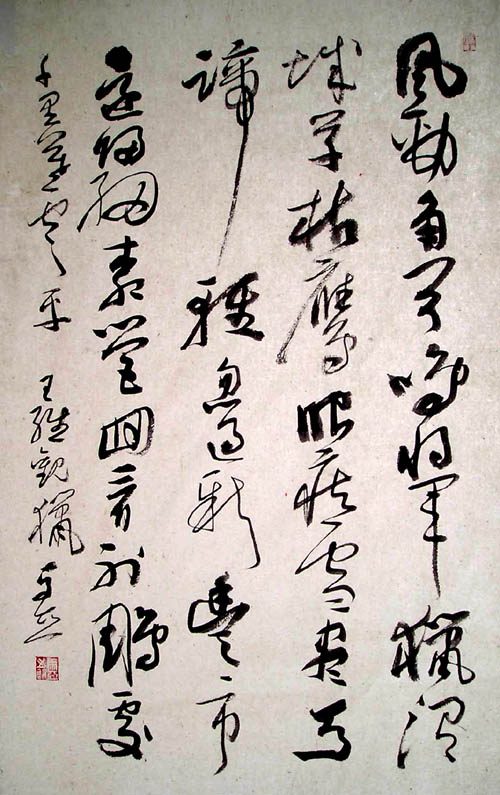 風勁角弓鳴将軍獵渭
城草枯鷹眼疾雪尽馬
蹄輕忽過新豐市
還歸細柳營回看射鵰處
千里暮雲平 王維觀獵